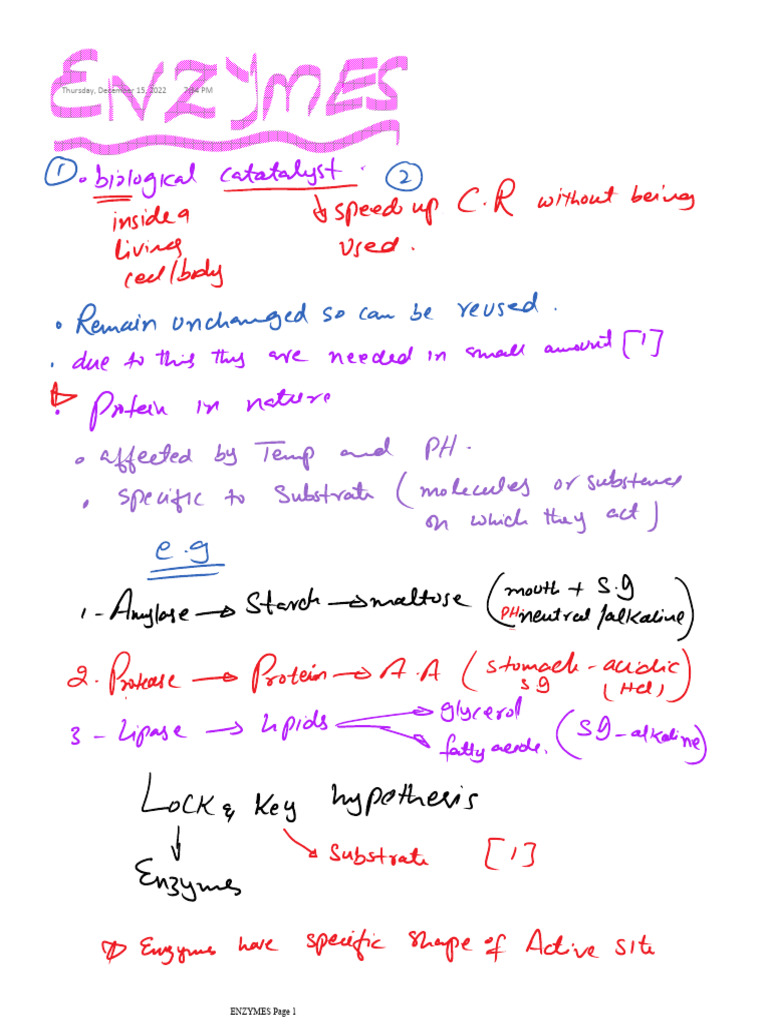 ENZYMES
Thursday, December 15, 2022 7:14 PM
① • biological catatalyst. ②
inside a
living
cell/body
↳ speed up C.R without being
used.
• Remain unchanged so can be reused.
• due to this thy are needed in small amount [1]
• Protein in nature
• affected by Temp and PH.
• specific to Substrate (molecules or substence
on which they act)
e.g
1 - Amylase → Starch → maltose (mouth + S.g
PH neutral /alkaline)
2. Protease → Protein → A.A (stomach - acidic
S g (HCl)
3 - Lipase → Lipids → glycerol
→ fatty acids. (Sg - alkaline)
Lock & Key hypothesis
↓ → Substrate [1]
Enzymes
Enzymes have specific shape of Active site
ENZYMES Page 1